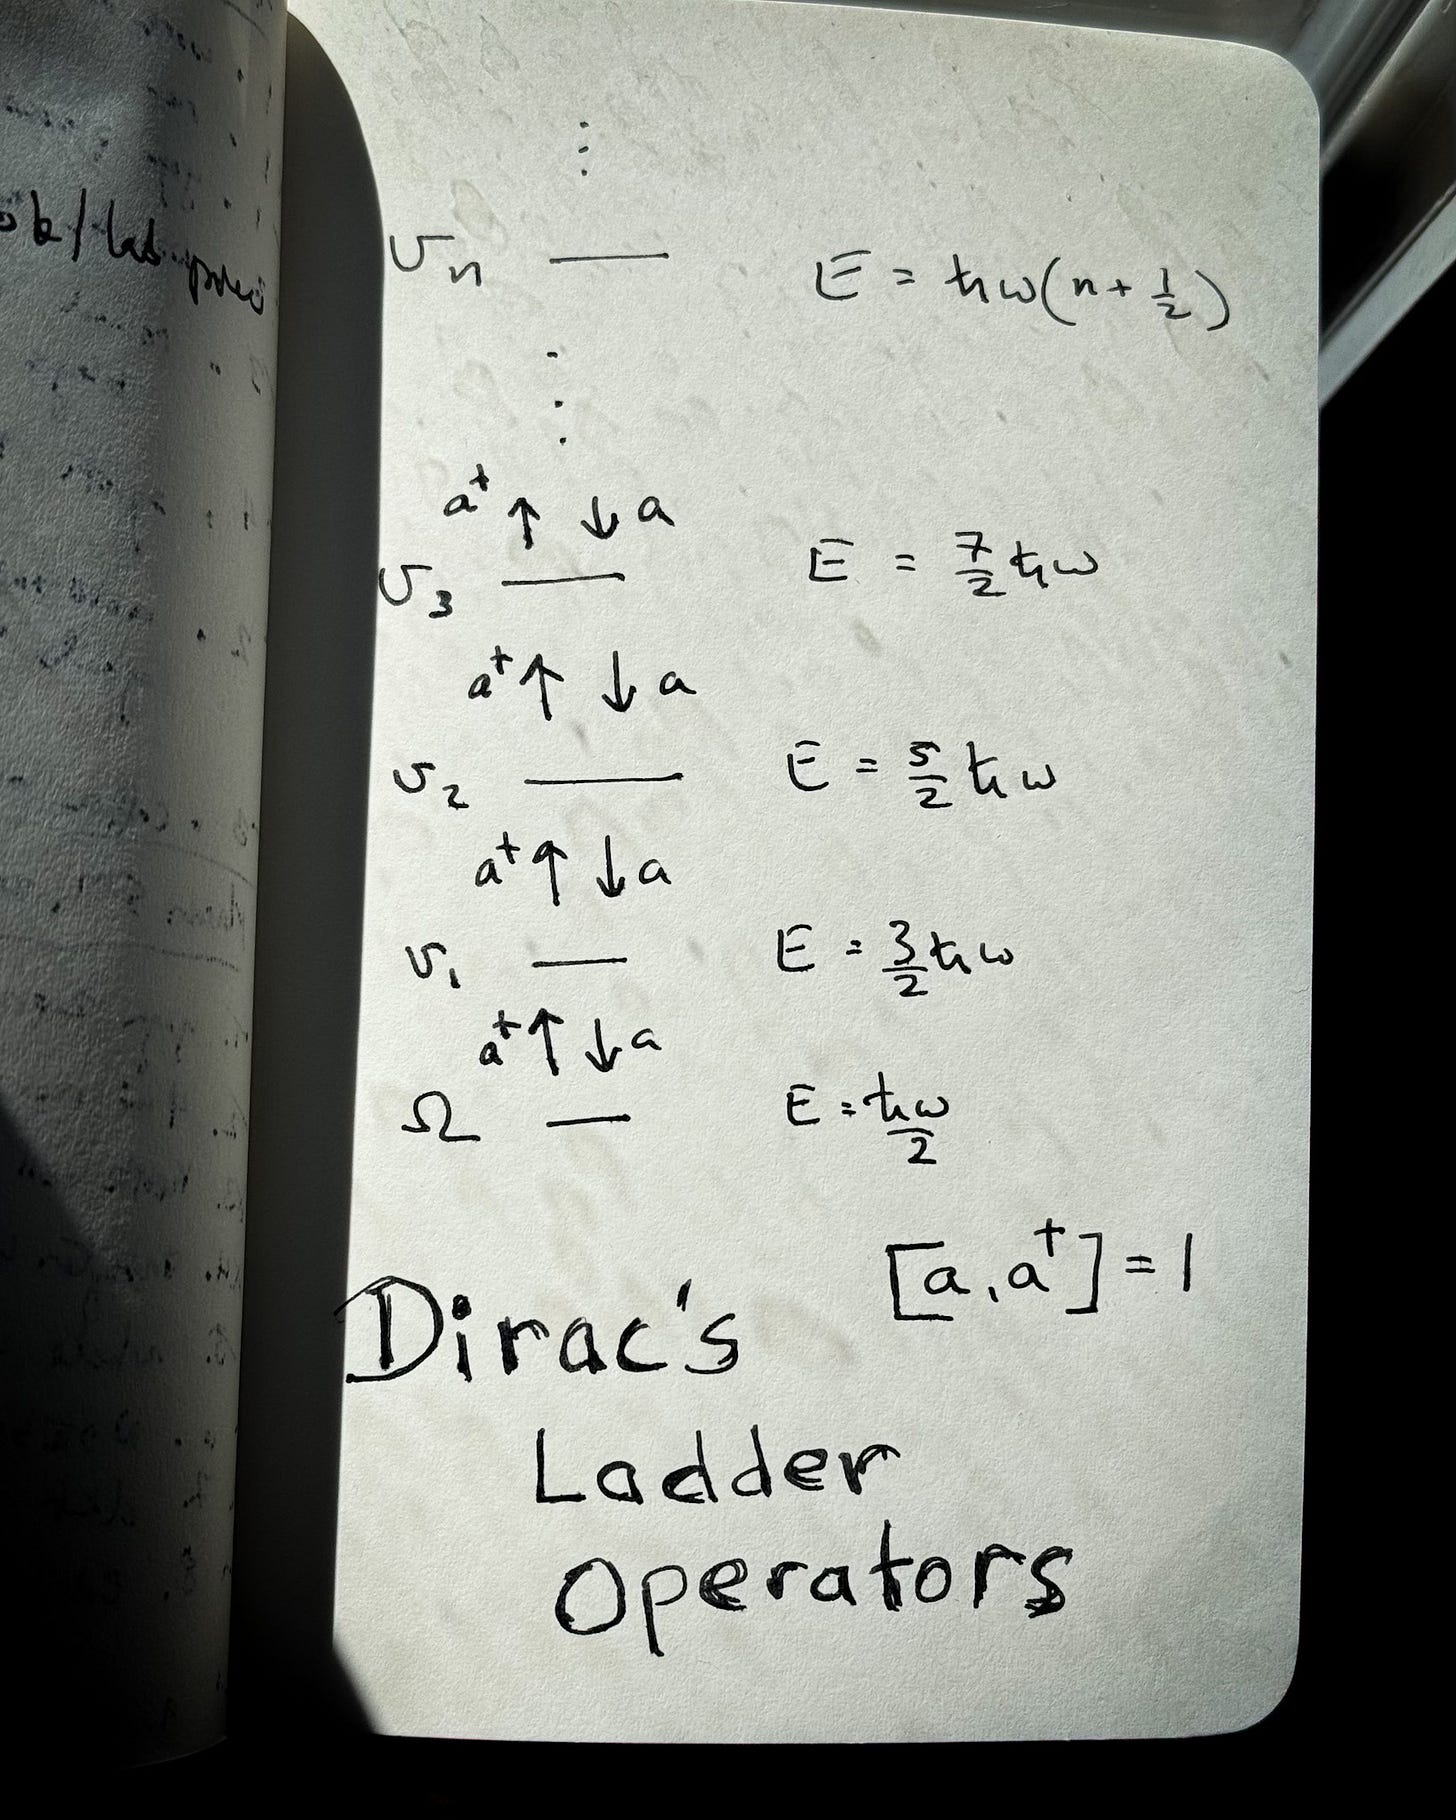 ⋮
v_n — E = ħω(n + 1/2)
⋮
a† ↑ ↓ a
v_3 — E = 7/2 ħω
a† ↑ ↓ a
v_2 — E = 5/2 ħω
a† ↑ ↓ a
v_1 — E = 3/2 ħω
a† ↑ ↓ a
Ω — E = ħω/2
[a, a†] = 1
Dirac's
Ladder
Operators